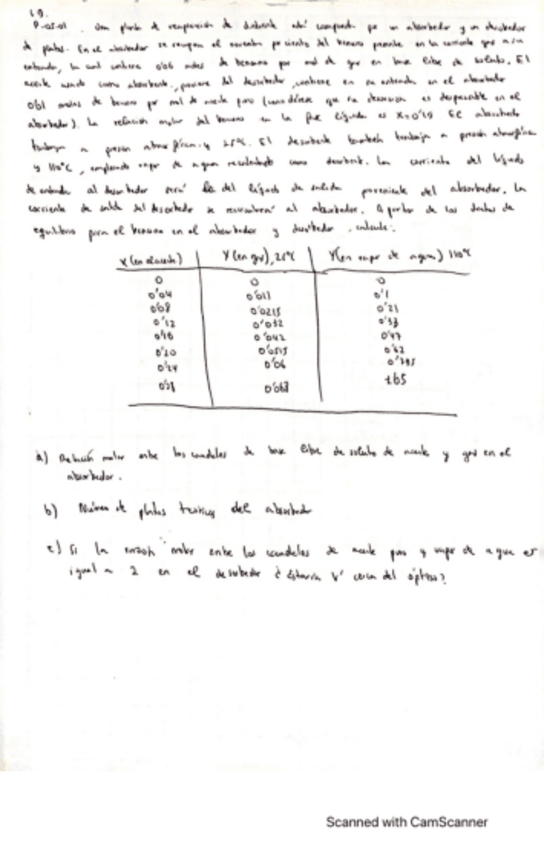 Una planta de recuperación de disolvente está compuesta por un absorbedor y un desorbedor
de platos. En el absorbedor se recupera el noventa por ciento del benceno presente en la corriente gas a su
entrada, la cual contiene 0'06 moles de benceno por mol de gas en base libre de soluto. El
aceite usado como absorbente, proviene del desorbedor, contiene en su entrada en el absorbedor
0'01 moles de benceno por mol de aceite puro (considérese que su es despreciable en el
absorbedor). La relación molar del benceno en la fase líquida es X=0'19. El absorbedor
trabaja a presión atmosférica y 25ºC. El desorbedor también trabaja a presión atmosférica
y 110ºC, empleando vapor de agua recalentado como desorbente. La corriente del líquido
de entrada al desorbedor será la del líquido de salida proveniente del absorbedor. La
corriente de salida del desorbedor se al absorbedor. A partir de los datos de
equilibrio para el benceno en el absorbedor y desorbedor, calcule:
X (en el aceite) Y (en gas), 25ºC Y (en vapor de agua) 110ºC
0 0 0
0'04 0'011 0'1
0'08 0'0215 0'21
0'12 0'032 0'33
0'16 0'042 0'47
0'20 0'0515 0'62
0'24 0'06 0'795
0'28 0'068 1'05
a) Relación molar entre los caudales de base libre de soluto de aceite y gas en el
absorbedor.
b) Número de platos teóricos del absorbedor
c) Si la razón molar entre los caudales de aceite puro y vapor de agua es
igual a 2 en el desorbedor ¿Estaría V' cerca del óptimo?
Scanned with CamScanner